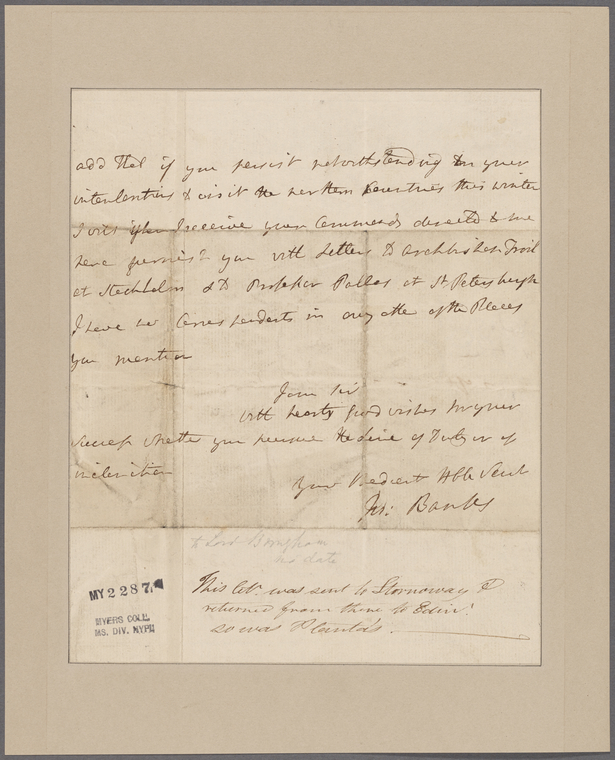 add that if you persist notwithstanding in your
intentention to visit the northern Countries this winter
I will when I receive your Commands directed to me
here furnish you with Letters to Archbishop Troil
at Stockholm & to Professor Pallas at St Petersburgh
I have no Correspondents in any other of the Places
you mention
I am Sir
with hearty Good wishes for your
success whether you pursue the Line of Duty or of
inclination
Your Obedient Hble Servt
Jos: Banks
to Lord Brougham
no date
This let. was sent to Stornoway &
returned from there to Edinr.
so was Planta's.
MY 2287
MYERS COLL.
MS. DIV. NYPL